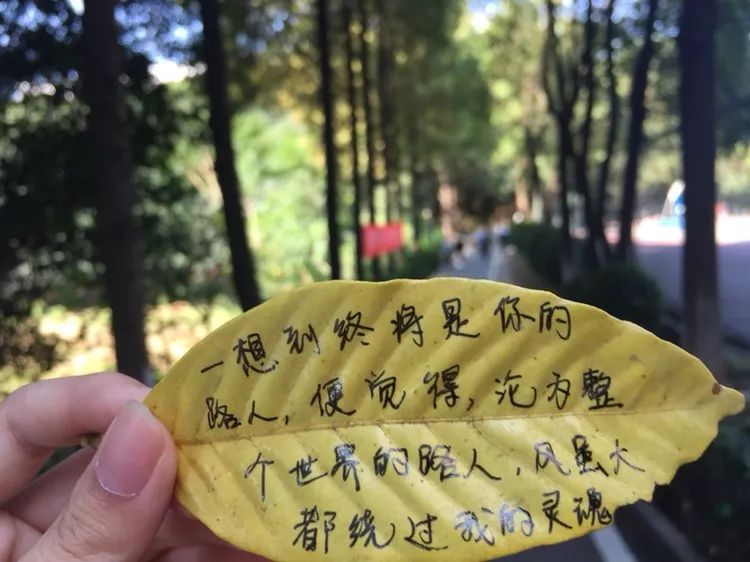 一想到终将是你的
路人,便觉得,沦为整
个世界的路人,风虽大
都绕过我的灵魂